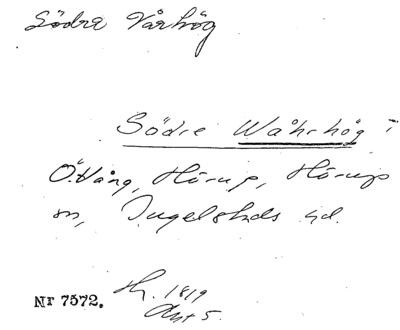 Södra Vårhög
Södre Wåhrhög i
Ö. Vång, Hörup, Hörups
sn, Ingelstads hd.
Nr 7572. Hr. 1819
Akt 5.